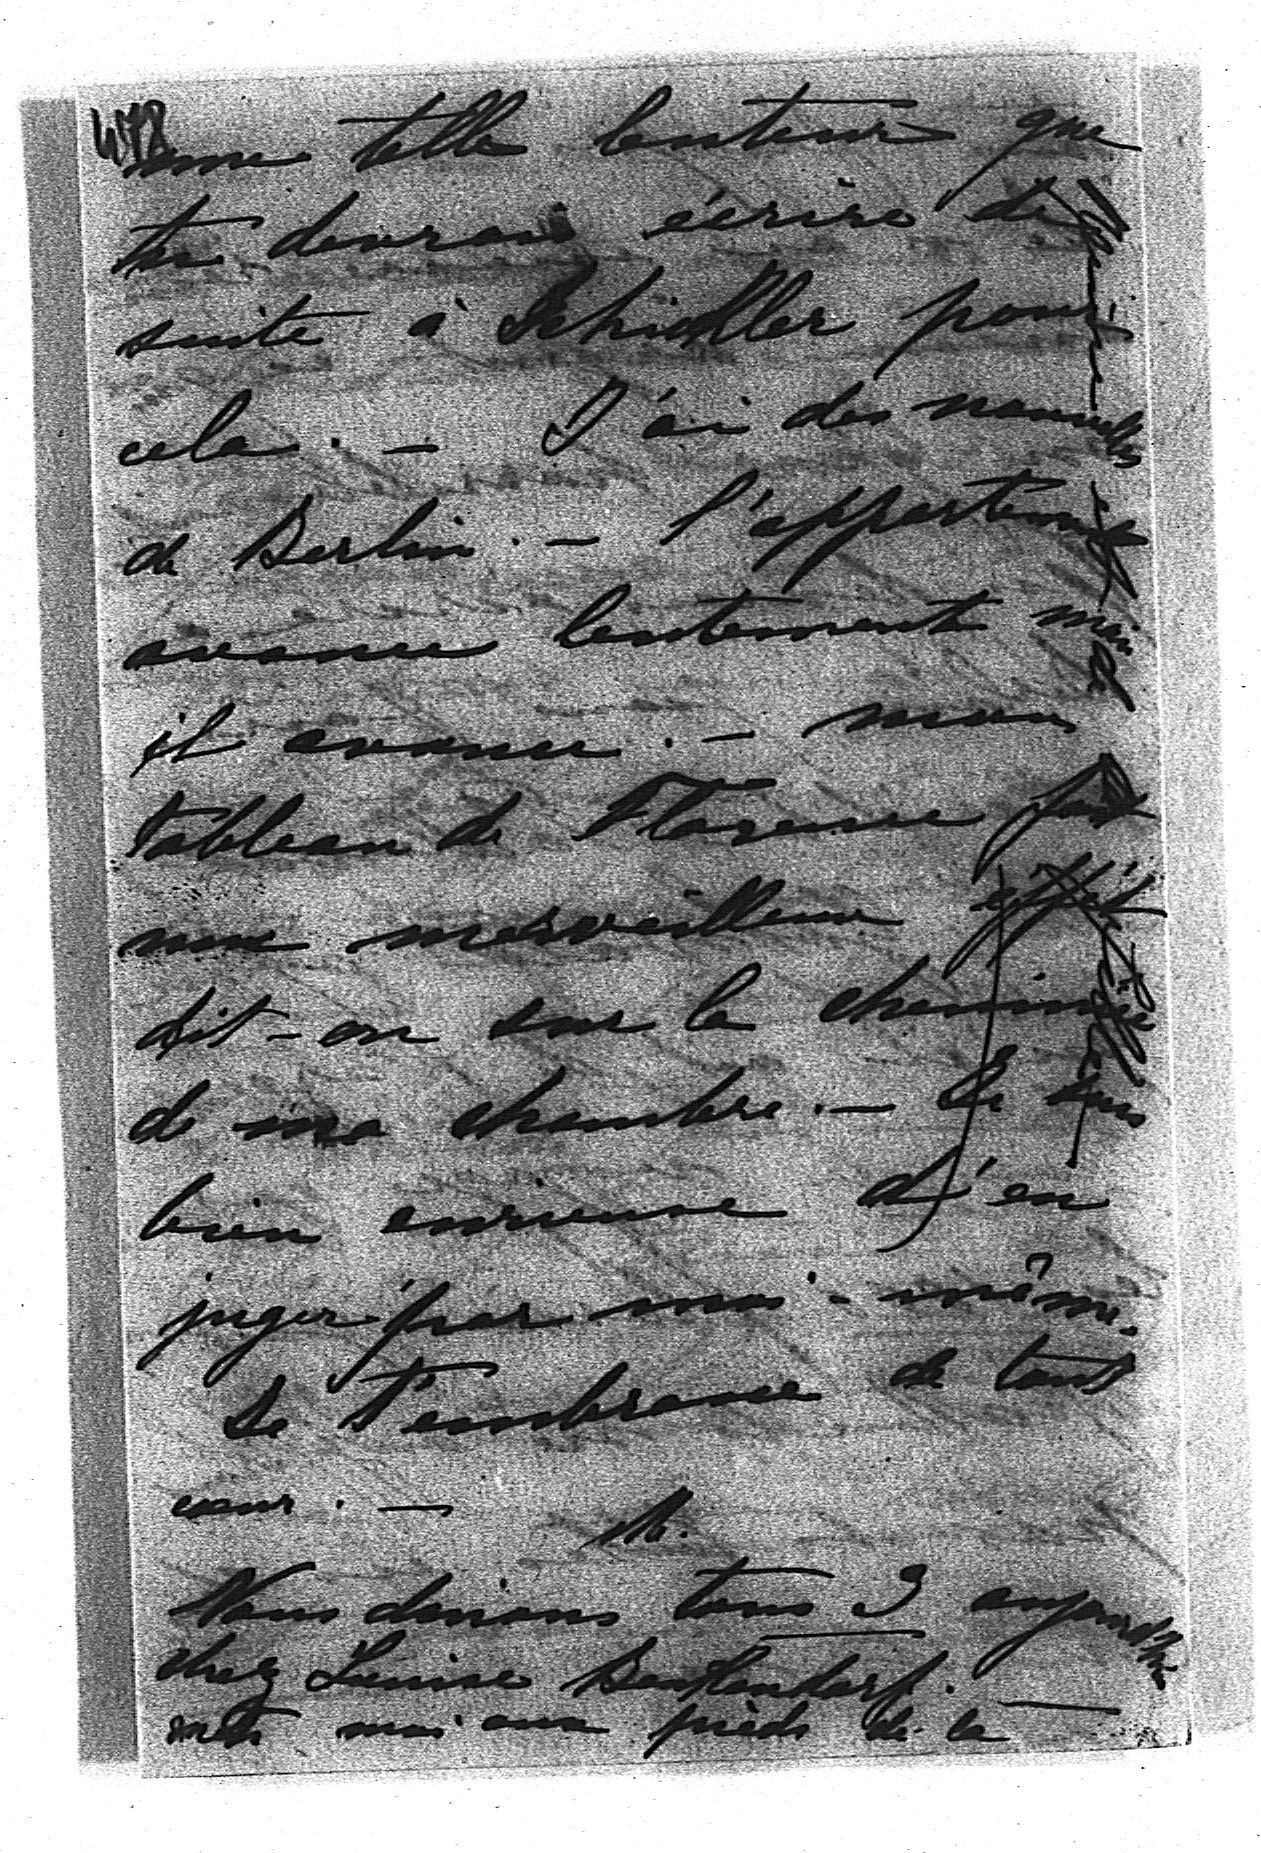 478
une telle lenteur que
tu devrais écrire de
suite à Schickler pour
cela. — J'ai des nouvelles
de Berlin. — l'appartement
avance lentement mais
il avance. — mon
tableau de Florence fait
un merveilleux effet
dit-on sur la cheminée
de ma chambre. — Je suis
bien curieuse d'en
juger par moi-même.
Je t'embrasse de tout
cœur. —
M.
Nous dinons tous 3 aujourd'hui
chez Louise
mets moi aux pieds de la